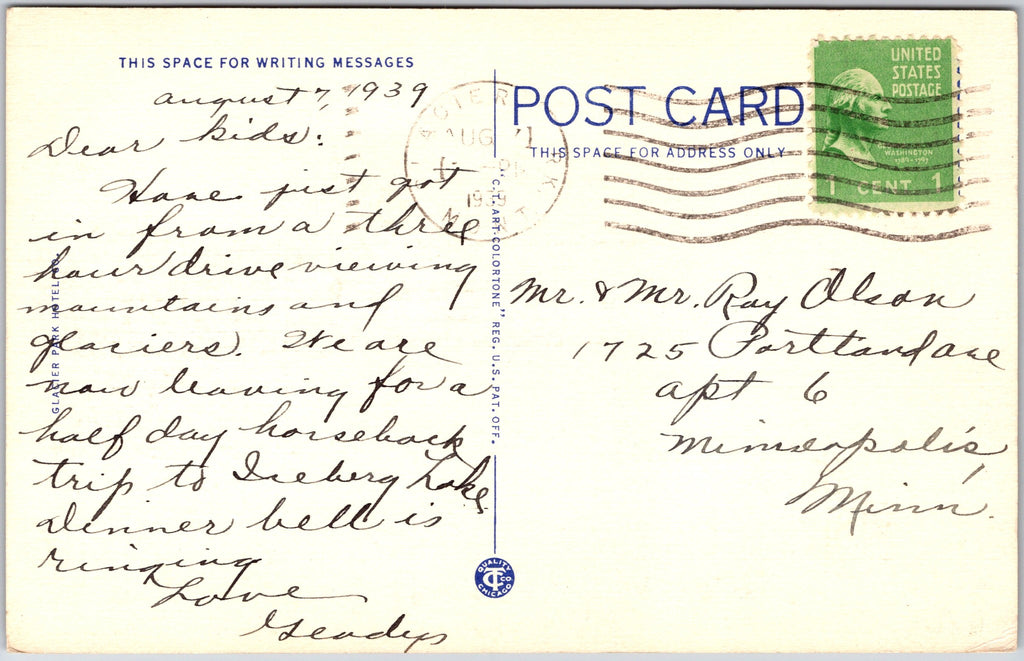 THIS SPACE FOR WRITING MESSAGES
august 7, 1939
Dear kids:
Have just got
in from a three
hour drive viewing
mountains and
glaciers. We are
now leaving for a
half day horseback
trip to Iceberg Lake.
Dinner bell is
ringing
Love
Gladys
GLACIER PARK HOTEL CO.
"C.T. ART-COLORTONE" REG. U.S. PAT. OFF.
QUALITY
CT CO
CHICAGO
POST CARD
THIS SPACE FOR ADDRESS ONLY
AUG 7
1939
MONT.
UNITED
STATES
POSTAGE
WASHINGTON
1789-1797
1 CENT 1
Mr. & Mr. Ray Olson
1725 Portland ave
apt 6
Minneapolis,
Minn.